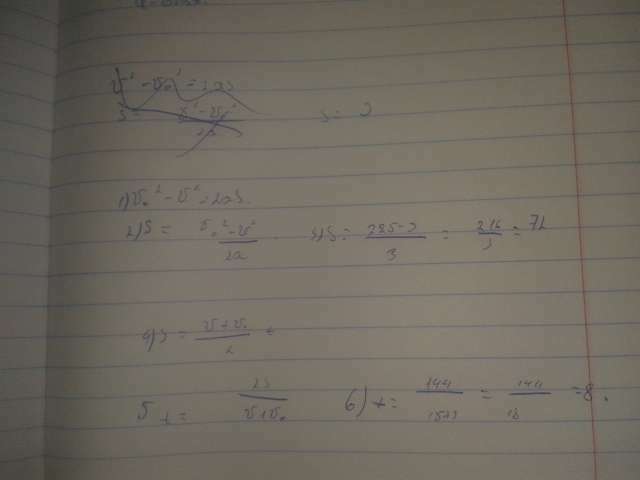 v² - v₀² = 2as
s = (v² - v₀²)/2a
s = ?
1) v₀² - v² = 2as
2) s = (v₀² - v²)/2a
3) s = /3 = 216/3 = 72
4) s = (v + v₀)/2 t
5 t = 2s/(v + v₀)
6) t = 144/(15+3) = 144/18 = 8.